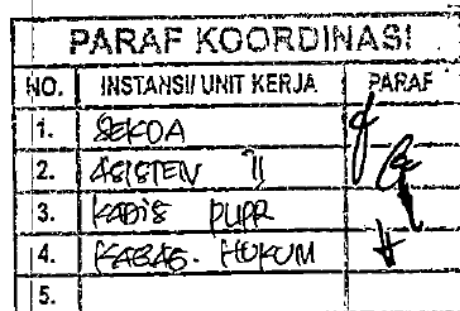 PARAF KOORDINASI
NO. INSTANSI/ UNIT KERJA PARAF
1. SEKDA
2. ASISTEN II
3. KADIS PUPR
4. KABAG. HUKUM
5.